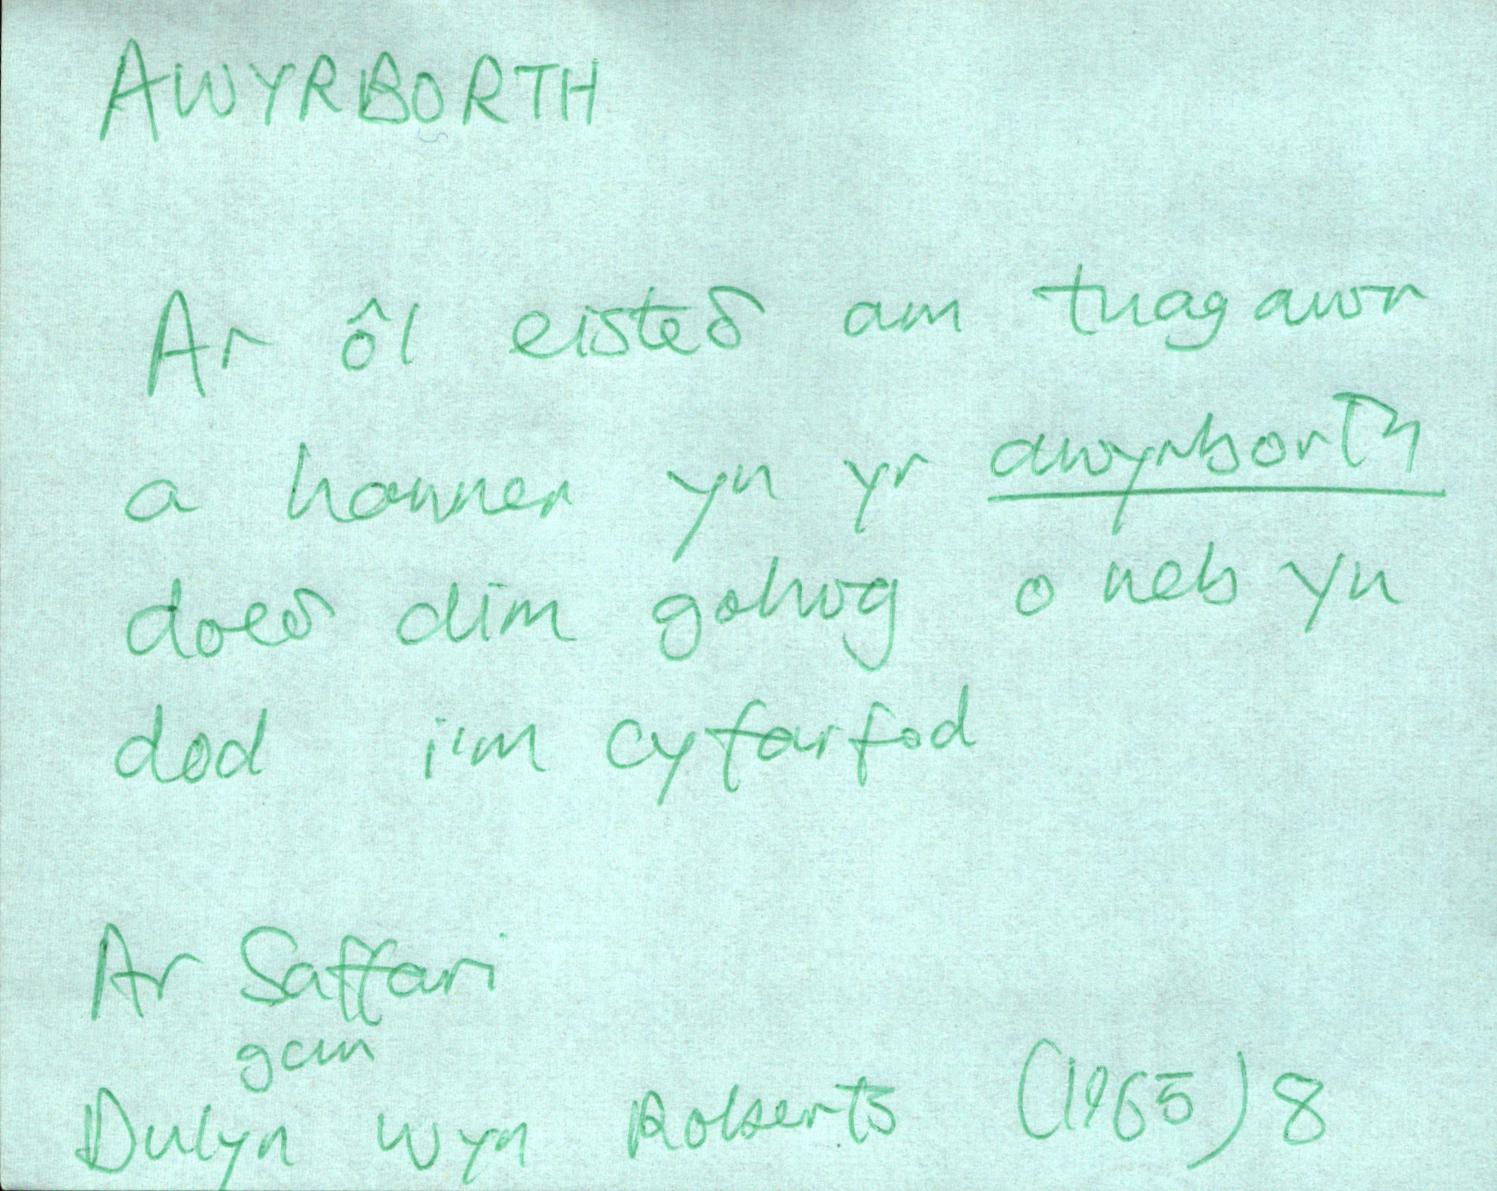 AWYRBORTH
Ar ôl eisteδ am tuag awr
a hanner yn yr awyrborth
doeδ dim golwg o neb yn
dod i'm cyfarfod
Ar Saffari
gan
Dulyn Wyn Roberts (1965) 8